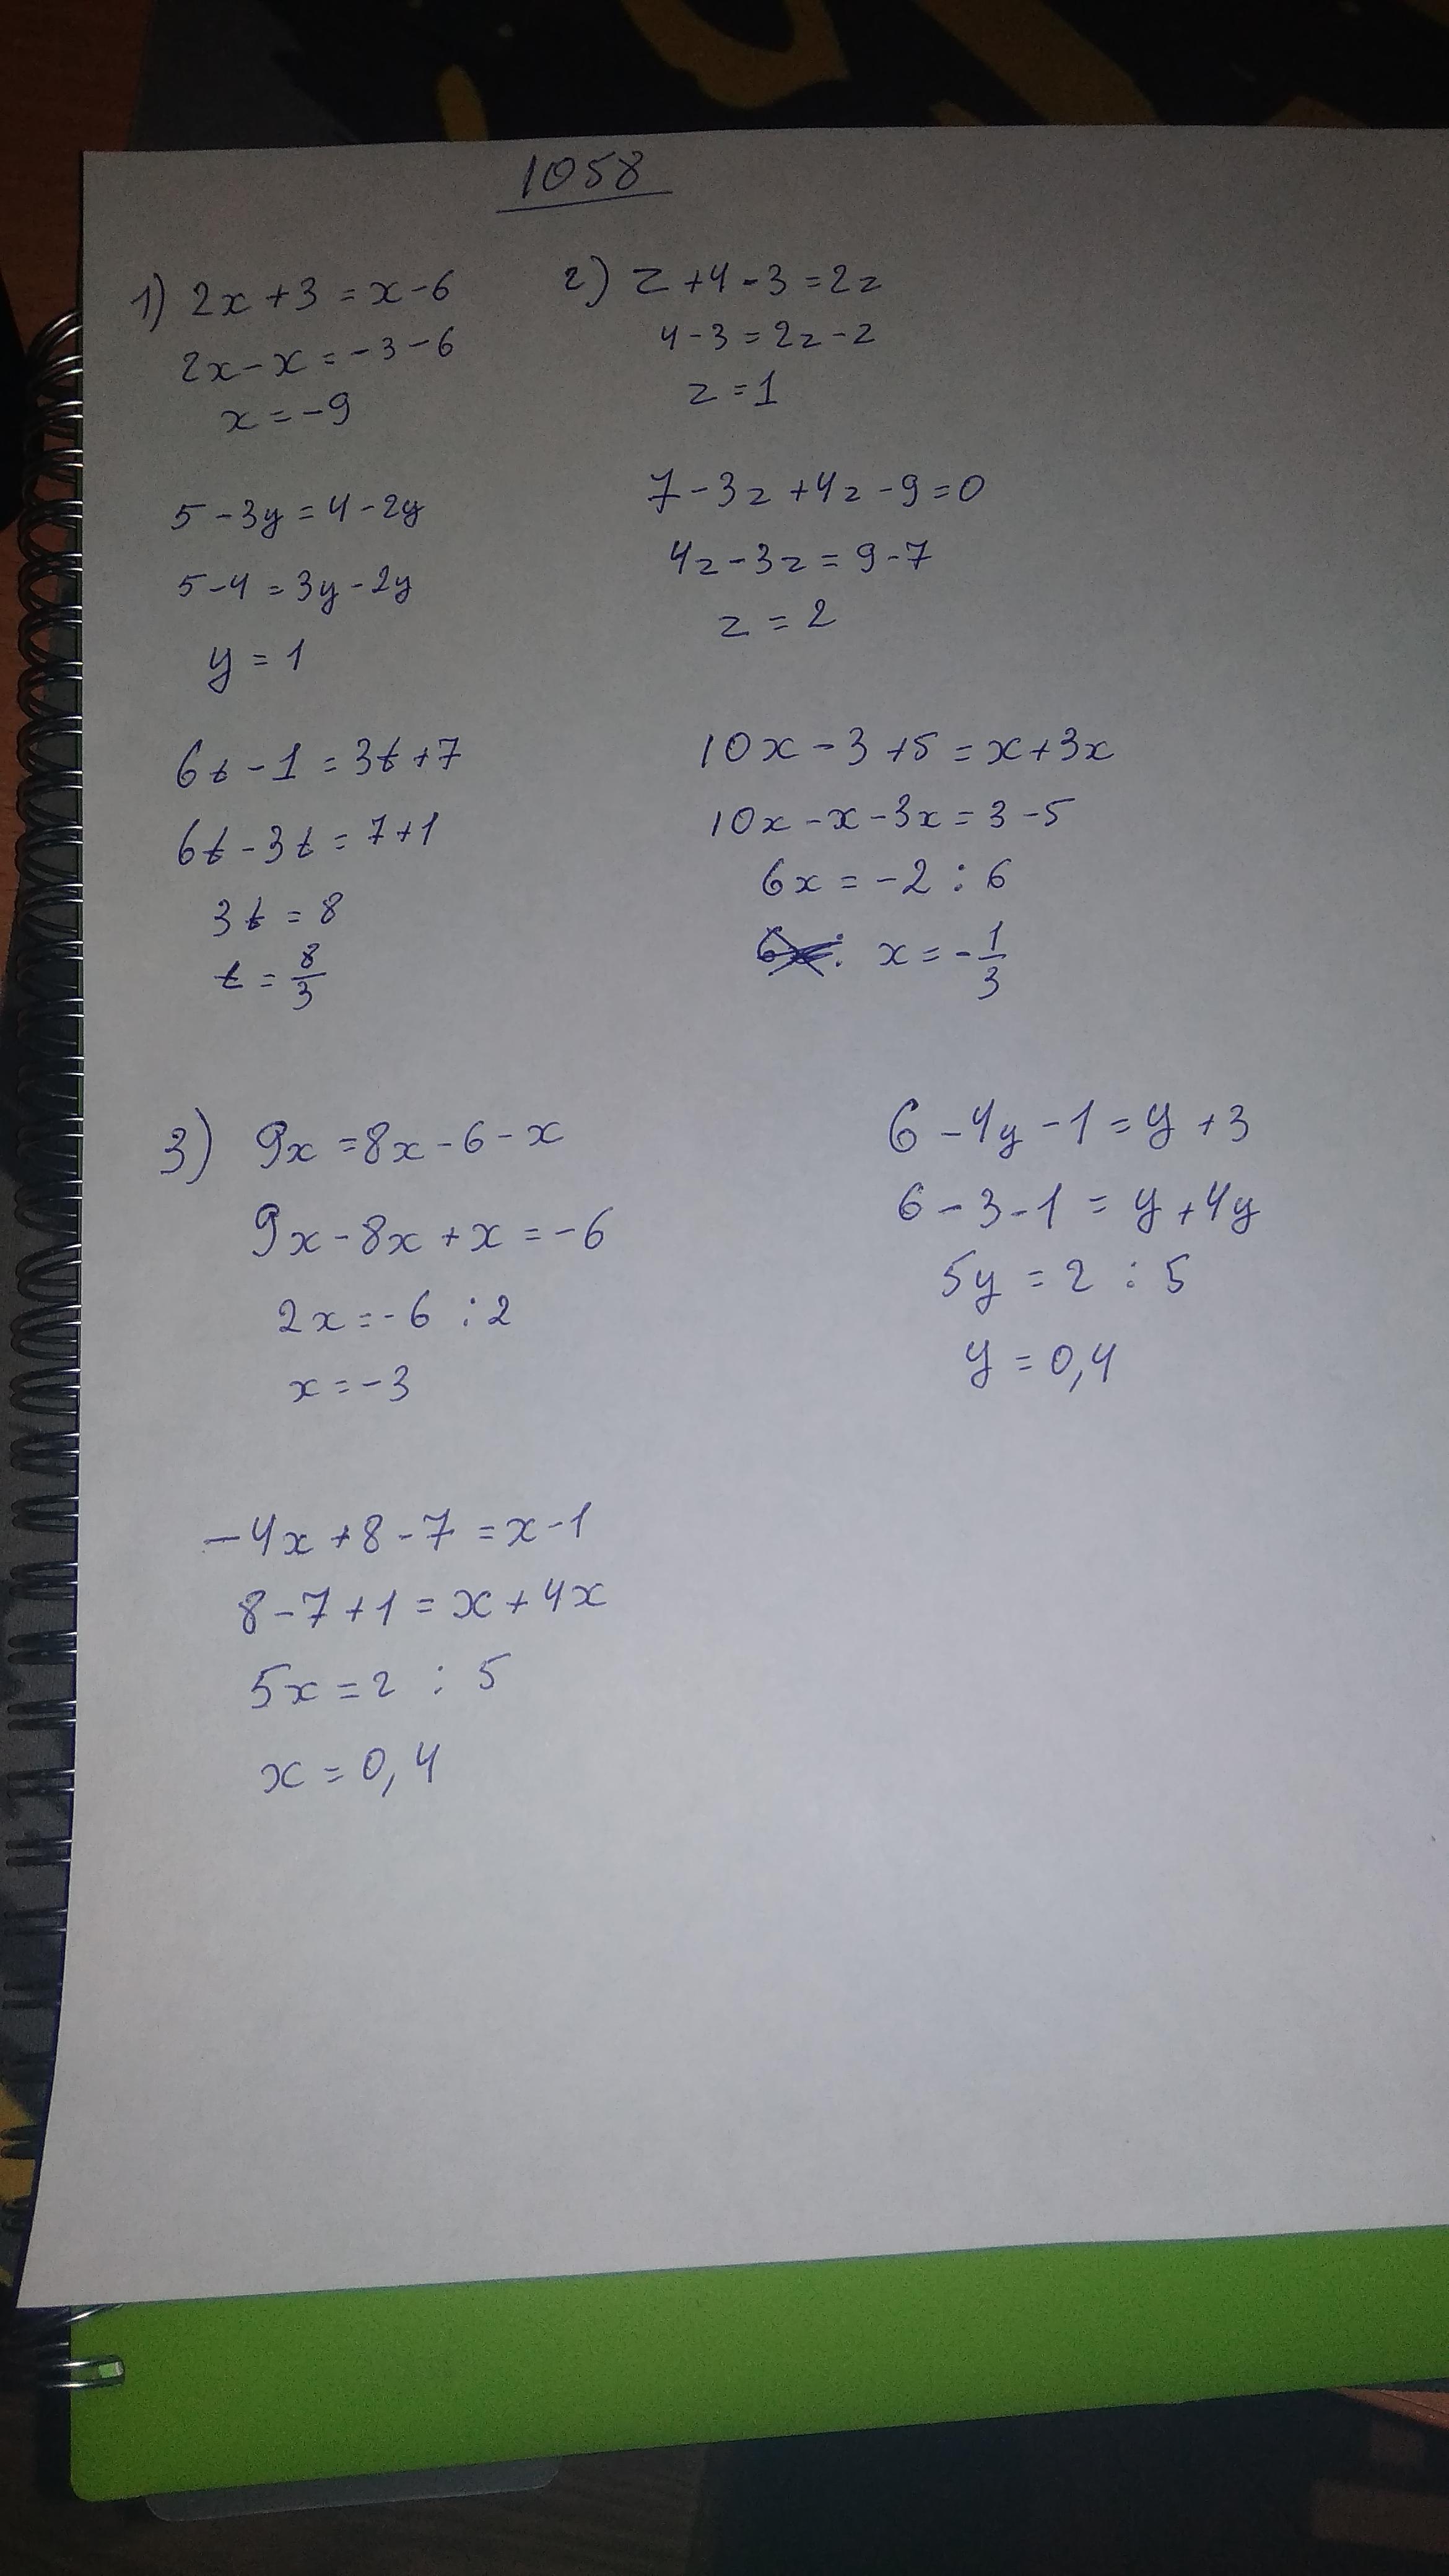 1058
1) 2x + 3 = x - 6
2x - x = -3 - 6
x = -9
5 - 3y = 4 - 2y
5 - 4 = 3y - 2y
y = 1
6t - 1 = 3t + 7
6t - 3t = 7 + 1
3t = 8
t = 8/3
2) z + 4 - 3 = 2z
4 - 3 = 2z - z
z = 1
7 - 3z + 4z - 9 = 0
4z - 3z = 9 - 7
z = 2
10x - 3 + 5 = x + 3x
10x - x - 3x = 3 - 5
6x = -2 : 6
x = -1/3
3) 9x = 8x - 6 - x
9x - 8x + x = -6
2x = -6 : 2
x = -3
6 - 4y - 1 = y + 3
6 - 3 - 1 = y + 4y
5y = 2 : 5
y = 0,4
-4x + 8 - 7 = x - 1
8 - 7 + 1 = x + 4x
5x = 2 : 5
x = 0,4